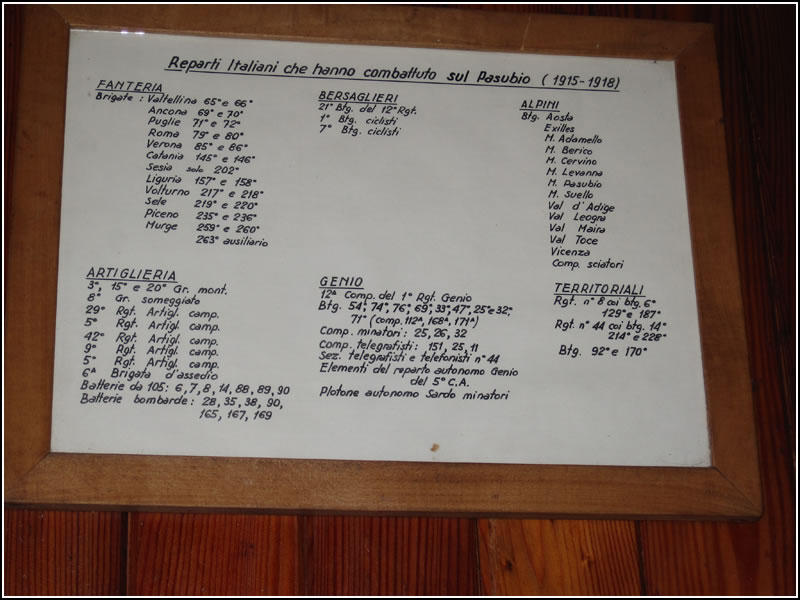 Reparti Italiani che hanno combattuto sul Pasubio (1915-1918)
FANTERIA
Brigate: Valtellina 65° e 66°
Ancona 69° e 70°
Puglie 71° e 72°
Roma 79° e 80°
Verona 85° e 86°
Catania 145° e 146°
Sesia solo 202°
Liguria 157° e 158°
Volturno 217° e 218°
Sele 219° e 220°
Piceno 235° e 236°
Murge 259° e 260°
263° ausiliario
BERSAGLIERI
21° Btg. del 12° Rgt.
1° Btg. ciclisti
7° Btg. ciclisti
ALPINI
Btg. Aosta
Exilles
M. Adamello
M. Berico
M. Cervino
M. Levanna
M. Pasubio
M. Suello
Val d'Adige
Val Leogra
Val Maira
Val Toce
Vicenza
Comp. sciatori
ARTIGLIERIA
3°, 15° e 20° Gr. mont.
8° Gr. someggiato
29° Rgt. Artigl. camp.
5° Rgt. Artigl. camp.
42° Rgt. Artigl. camp.
9° Rgt. Artigl. camp.
5° Rgt. Artigl. camp.
6ª Brigata d'assedio
Batterie da 105: 6, 7, 8, 14, 88, 89, 90
Batterie bombarde: 28, 35, 38, 90,
165, 167, 169
GENIO
12ª Comp. del 1° Rgt. Genio
Btg. 54°, 74°, 76°, 69°, 33°, 47°, 25° e 32°,
71° (comp. 112ª, 168ª, 171ª)
Comp. minatori: 25, 26, 32
Comp. telegrafisti: 151, 25, 11
Sez. telegrafisti e telefonisti n° 44
Elementi del reparto autonomo Genio
del 5° C.A.
Plotone autonomo Sardo minatori
TERRITORIALI
Rgt. n° 8 coi btg. 6°
129° e 187°
Rgt. n° 44 coi btg. 14°
214° e 228°
Btg. 92° e 170°